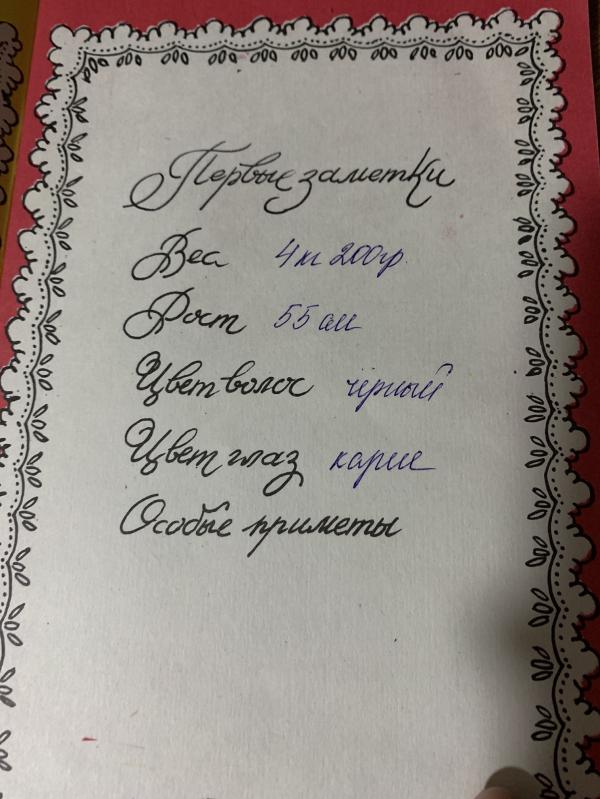 Первые заметки
Вес 4 кг 200 гр.
Рост 55 см
Цвет волос чёрный
Цвет глаз карие
Особые приметы